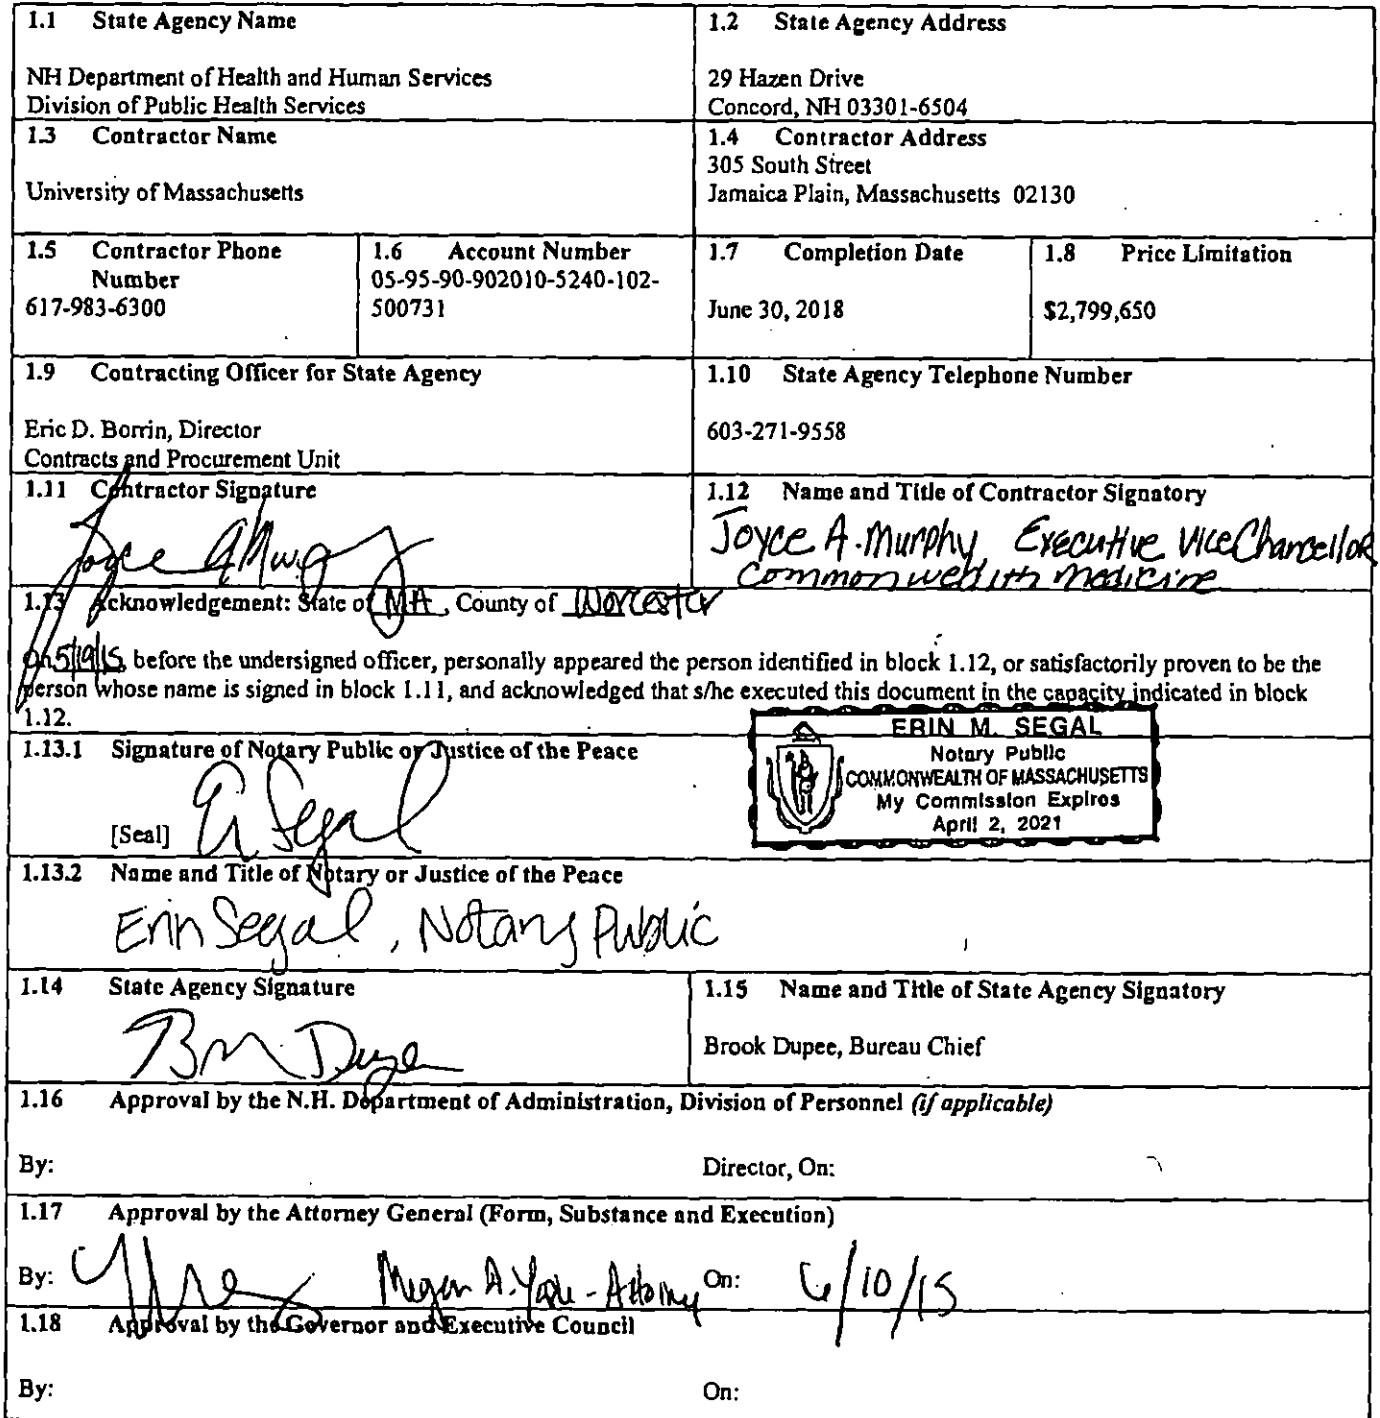 1.1 State Agency Name
NH Department of Health and Human Services
Division of Public Health Services
1.2 State Agency Address
29 Hazen Drive
Concord, NH 03301-6504
1.3 Contractor Name
University of Massachusetts
1.4 Contractor Address
305 South Street
Jamaica Plain, Massachusetts 02130
1.5 Contractor Phone
Number
617-983-6300
1.6 Account Number
05-95-90-902010-5240-102-
500731
1.7 Completion Date
June 30, 2018
1.8 Price Limitation
$2,799,650
1.9 Contracting Officer for State Agency
Eric D. Borrin, Director
Contracts and Procurement Unit
1.10 State Agency Telephone Number
603-271-9558
1.11 Contractor Signature
Joyce A Murphy
1.12 Name and Title of Contractor Signatory
Joyce A. Murphy, Executive Vice Chancellor
Commonwealth Medicine
1.13 Acknowledgement: State of MA, County of Worcester
On 5/19/15, before the undersigned officer, personally appeared the person identified in block 1.12, or satisfactorily proven to be the
person whose name is signed in block 1.11, and acknowledged that s/he executed this document in the capacity indicated in block
1.12.
1.13.1 Signature of Notary Public or Justice of the Peace
[Seal]
E Segal
ERIN M. SEGAL
Notary Public
COMMONWEALTH OF MASSACHUSETTS
My Commission Expires
April 2, 2021
1.13.2 Name and Title of Notary or Justice of the Peace
Erin Segal, Notary Public
1.14 State Agency Signature
1.15 Name and Title of State Agency Signatory
Brook Dupee, Bureau Chief
1.16 Approval by the N.H. Department of Administration, Division of Personnel (if applicable)
By: Director, On:
1.17 Approval by the Attorney General (Form, Substance and Execution)
By: Megan A. Yaple - Attorney On: 6/10/15
1.18 Approval by the Governor and Executive Council
By: On: